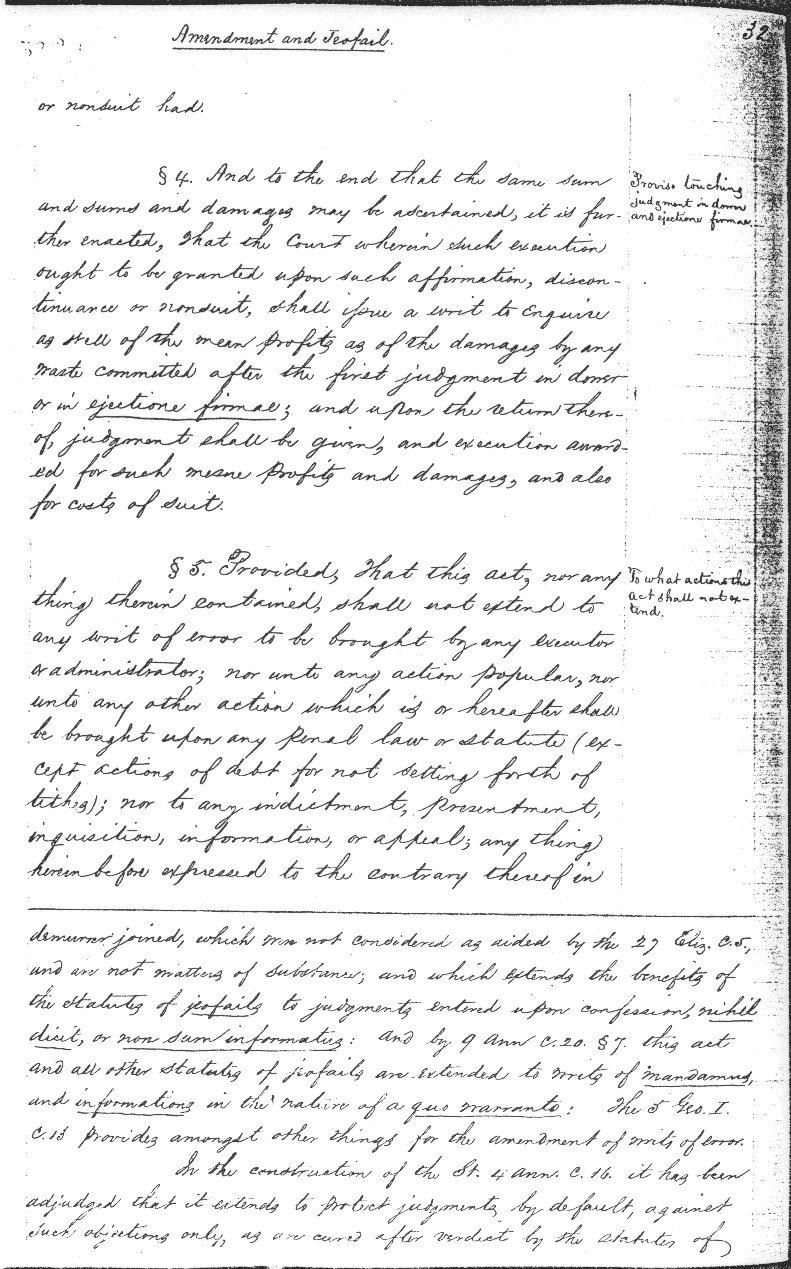 Amendment and Jeofail.
32
or nonsuit had.
§ 4. And to the end that the same sum
and sums and damages may be ascertained, it is fur-
ther enacted, That the Court wherein such execution
ought to be granted upon such affirmation, discon-
tinuance or nonsuit, shall issue a writ to enquire
as well of the mean profits as of the damages by any
waste committed after the first judgment in dower
or in ejectione firmae; and upon the return there-
of, judgment shall be given, and execution award-
ed for such mesne profits and damages, and also
for costs of suit.
Proviso touching
judgment in dower
and ejectione firmae.
§ 5. Provided, That this act, nor any
thing therein contained, shall not extend to
any writ of error to be brought by any executor
or administrator; nor unto any action popular, nor
unto any other action which is or hereafter shall
be brought upon any penal law or statute (ex-
cept actions of debt for not setting forth of
tithes); nor to any indictment, presentment,
inquisition, information, or appeal; any thing
herein before expressed to the contrary thereof in
To what actions this
act shall not ex-
tend.
demurrer joined, which are not considered as aided by the 27 Eliz. C. 5.,
and are not matters of substance; and which extends the benefits of
the statutes of jeofails to judgments entered upon confession, nihil
dicit, or non sum informatus: and by 9 Ann C. 20. § 7. this act
and all other statutes of jeofails are extended to writs of mandamus,
and informations in the nature of a quo warranto: The 5 Geo. I.
C. 13 provides amongst other things for the amendment of writs of error.
In the construction of the St. 4 Ann. C. 16. it has been
adjudged that it extends to protect judgments by default, against
such objections only, as are cured after verdict by the statutes of